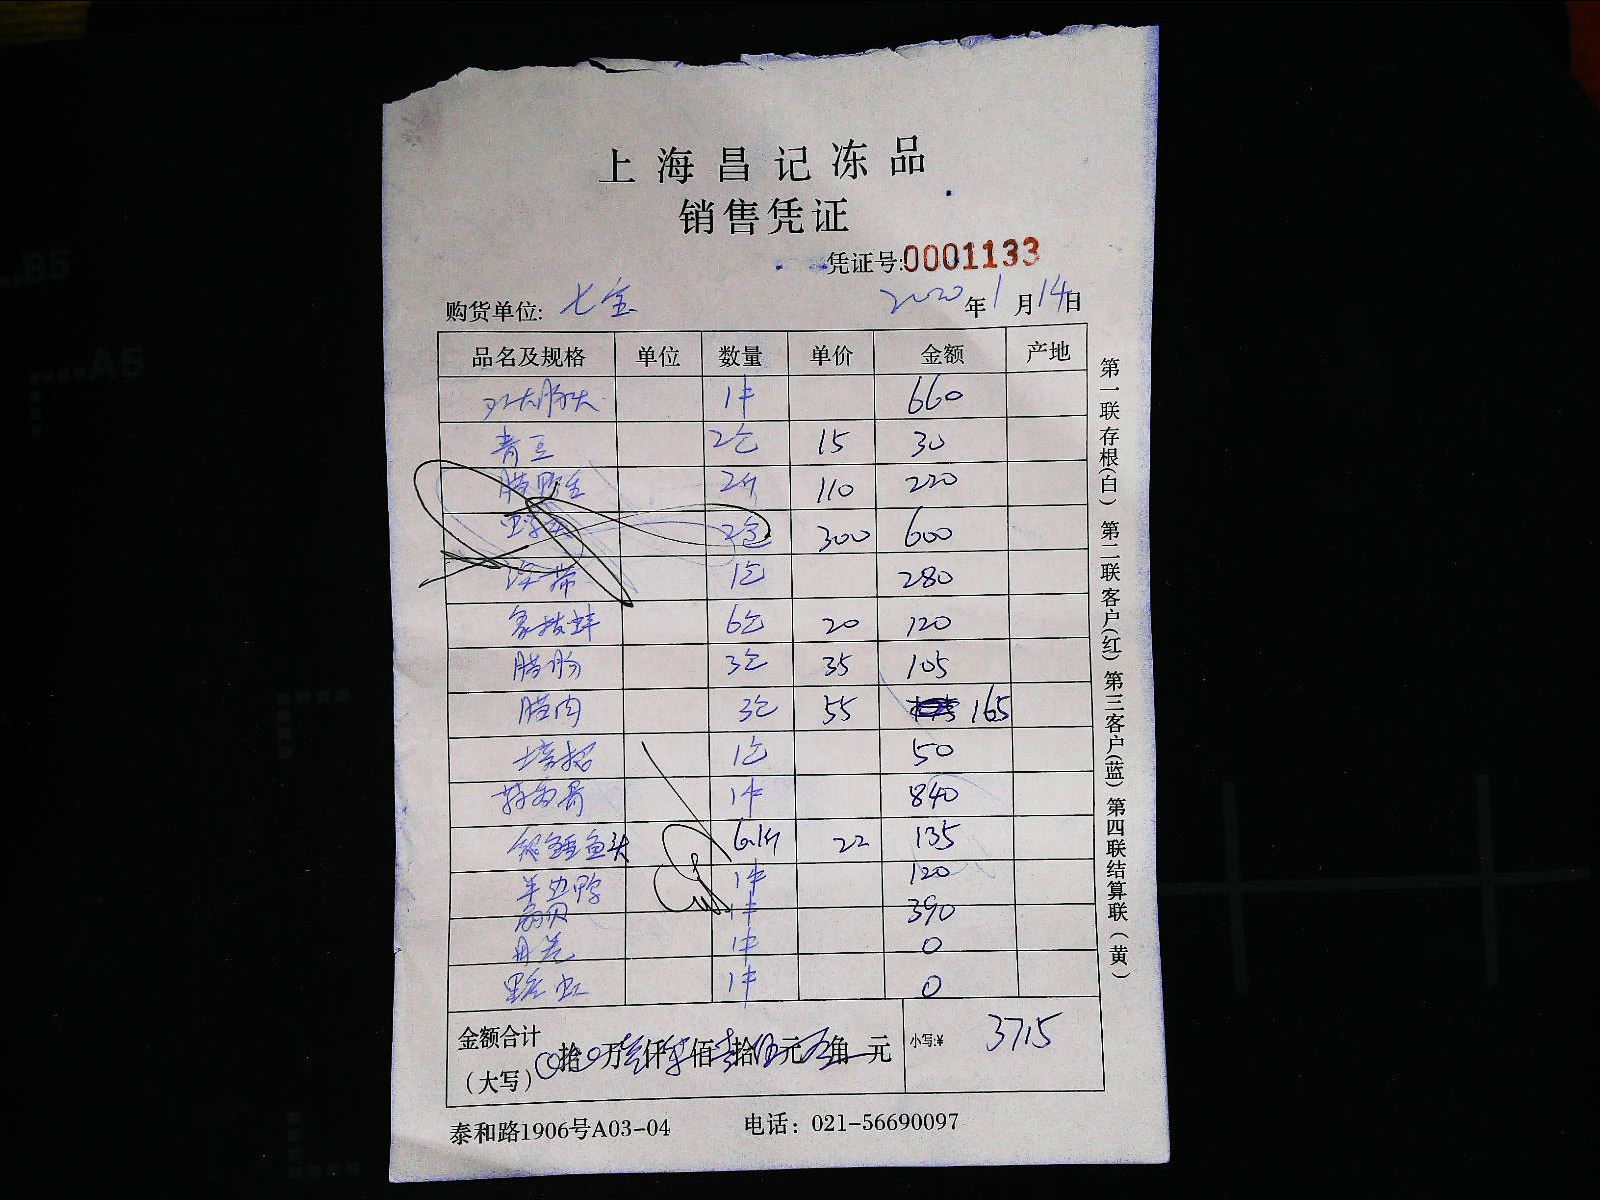 上海昌记冻品
销售凭证
凭证号:0001133
购货单位: 七宝 2020年1月14日
品名及规格 单位 数量 单价 金额 产地
1件 660
青豆 2包 15 30
2只 110 220
2包 300 600
1包 280
象拔蚌 6包 20 120
腊肠 3包 35 105
腊肉 3包 55 165
培根 1包 50
1件 840
银鳕鱼头 6.1斤 22 135
半边鸭 1件 120
扇贝 1件 390
1件 0
1件 0
金额合计 拾 万 仟 佰 拾 元 角 元 小写:¥ 3715
(大写)
泰和路1906号A03-04 电话: 021-56690097
第一联存根(白) 第二联客户(红) 第三客户(蓝) 第四联结算联(黄)
B5
A5